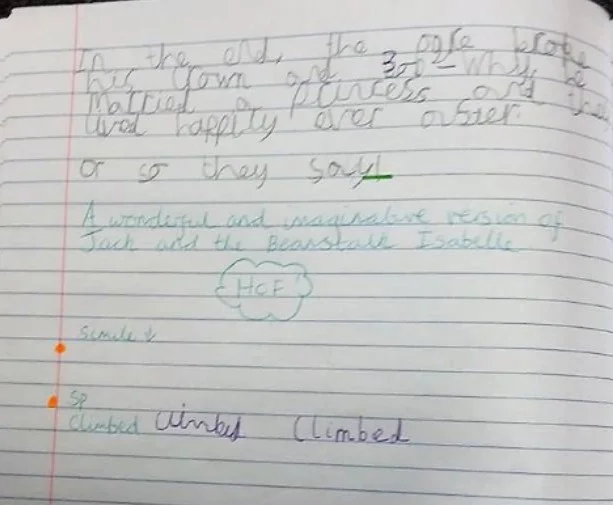 In the end, the ogre broke
his crown and why he
Married a princess and the
lived happity ever aster.
or so they say!
A wonderful and imaginative version of
Jack and the Beanstalk Isabelle
HCF
Simile ↓
Sp
Climbed Climbed Climbed